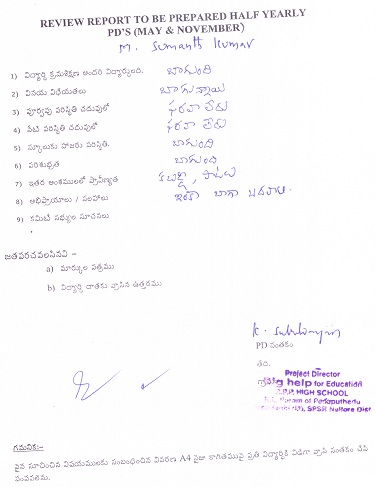 REVIEW REPORT TO BE PREPARED HALF YEARLY
PD'S (MAY & NOVEMBER)
M. Sumanth Kumar
1) విద్యార్థి క్రమశిక్షణ అందరి విద్యార్థులది. బాగుంది
2) వినయ విధేయతలు బాగున్నాయి
3) పూర్వపు పరిస్థితి చదువులో పరవా లేదు
4) నేటి పరిస్థితి చదువులో పరవా లేదు
5) స్కూలుకు హాజరు పరిస్థితి. బాగుంది
6) పరిశుభ్రత బాగుంది
7) ఇతర అంశములలో ప్రావీణ్యత కబడ్డీ, పాటలు
8) అభిప్రాయాలు / సలహాలు ఇంకా బాగా చదవాలి.
9) కమిటీ సభ్యుల సూచనలు
జతపరచవలసినవి –
a) మార్కుల పత్రము
b) విద్యార్థి దాతకు వ్రాసిన ఉత్తరము
PD సంతకం
తేది.
Project Director
help for Education
HIGH SCHOOL
SPSR Nellore Dist
గమనిక:–
పైన సూచించిన విషయములకు సంబంధించిన వివరణ A4 సైజు కాగితముపై ప్రతి విద్యార్థికి విడిగా వ్రాసి సంతకం చేసి
పంపవలెను.